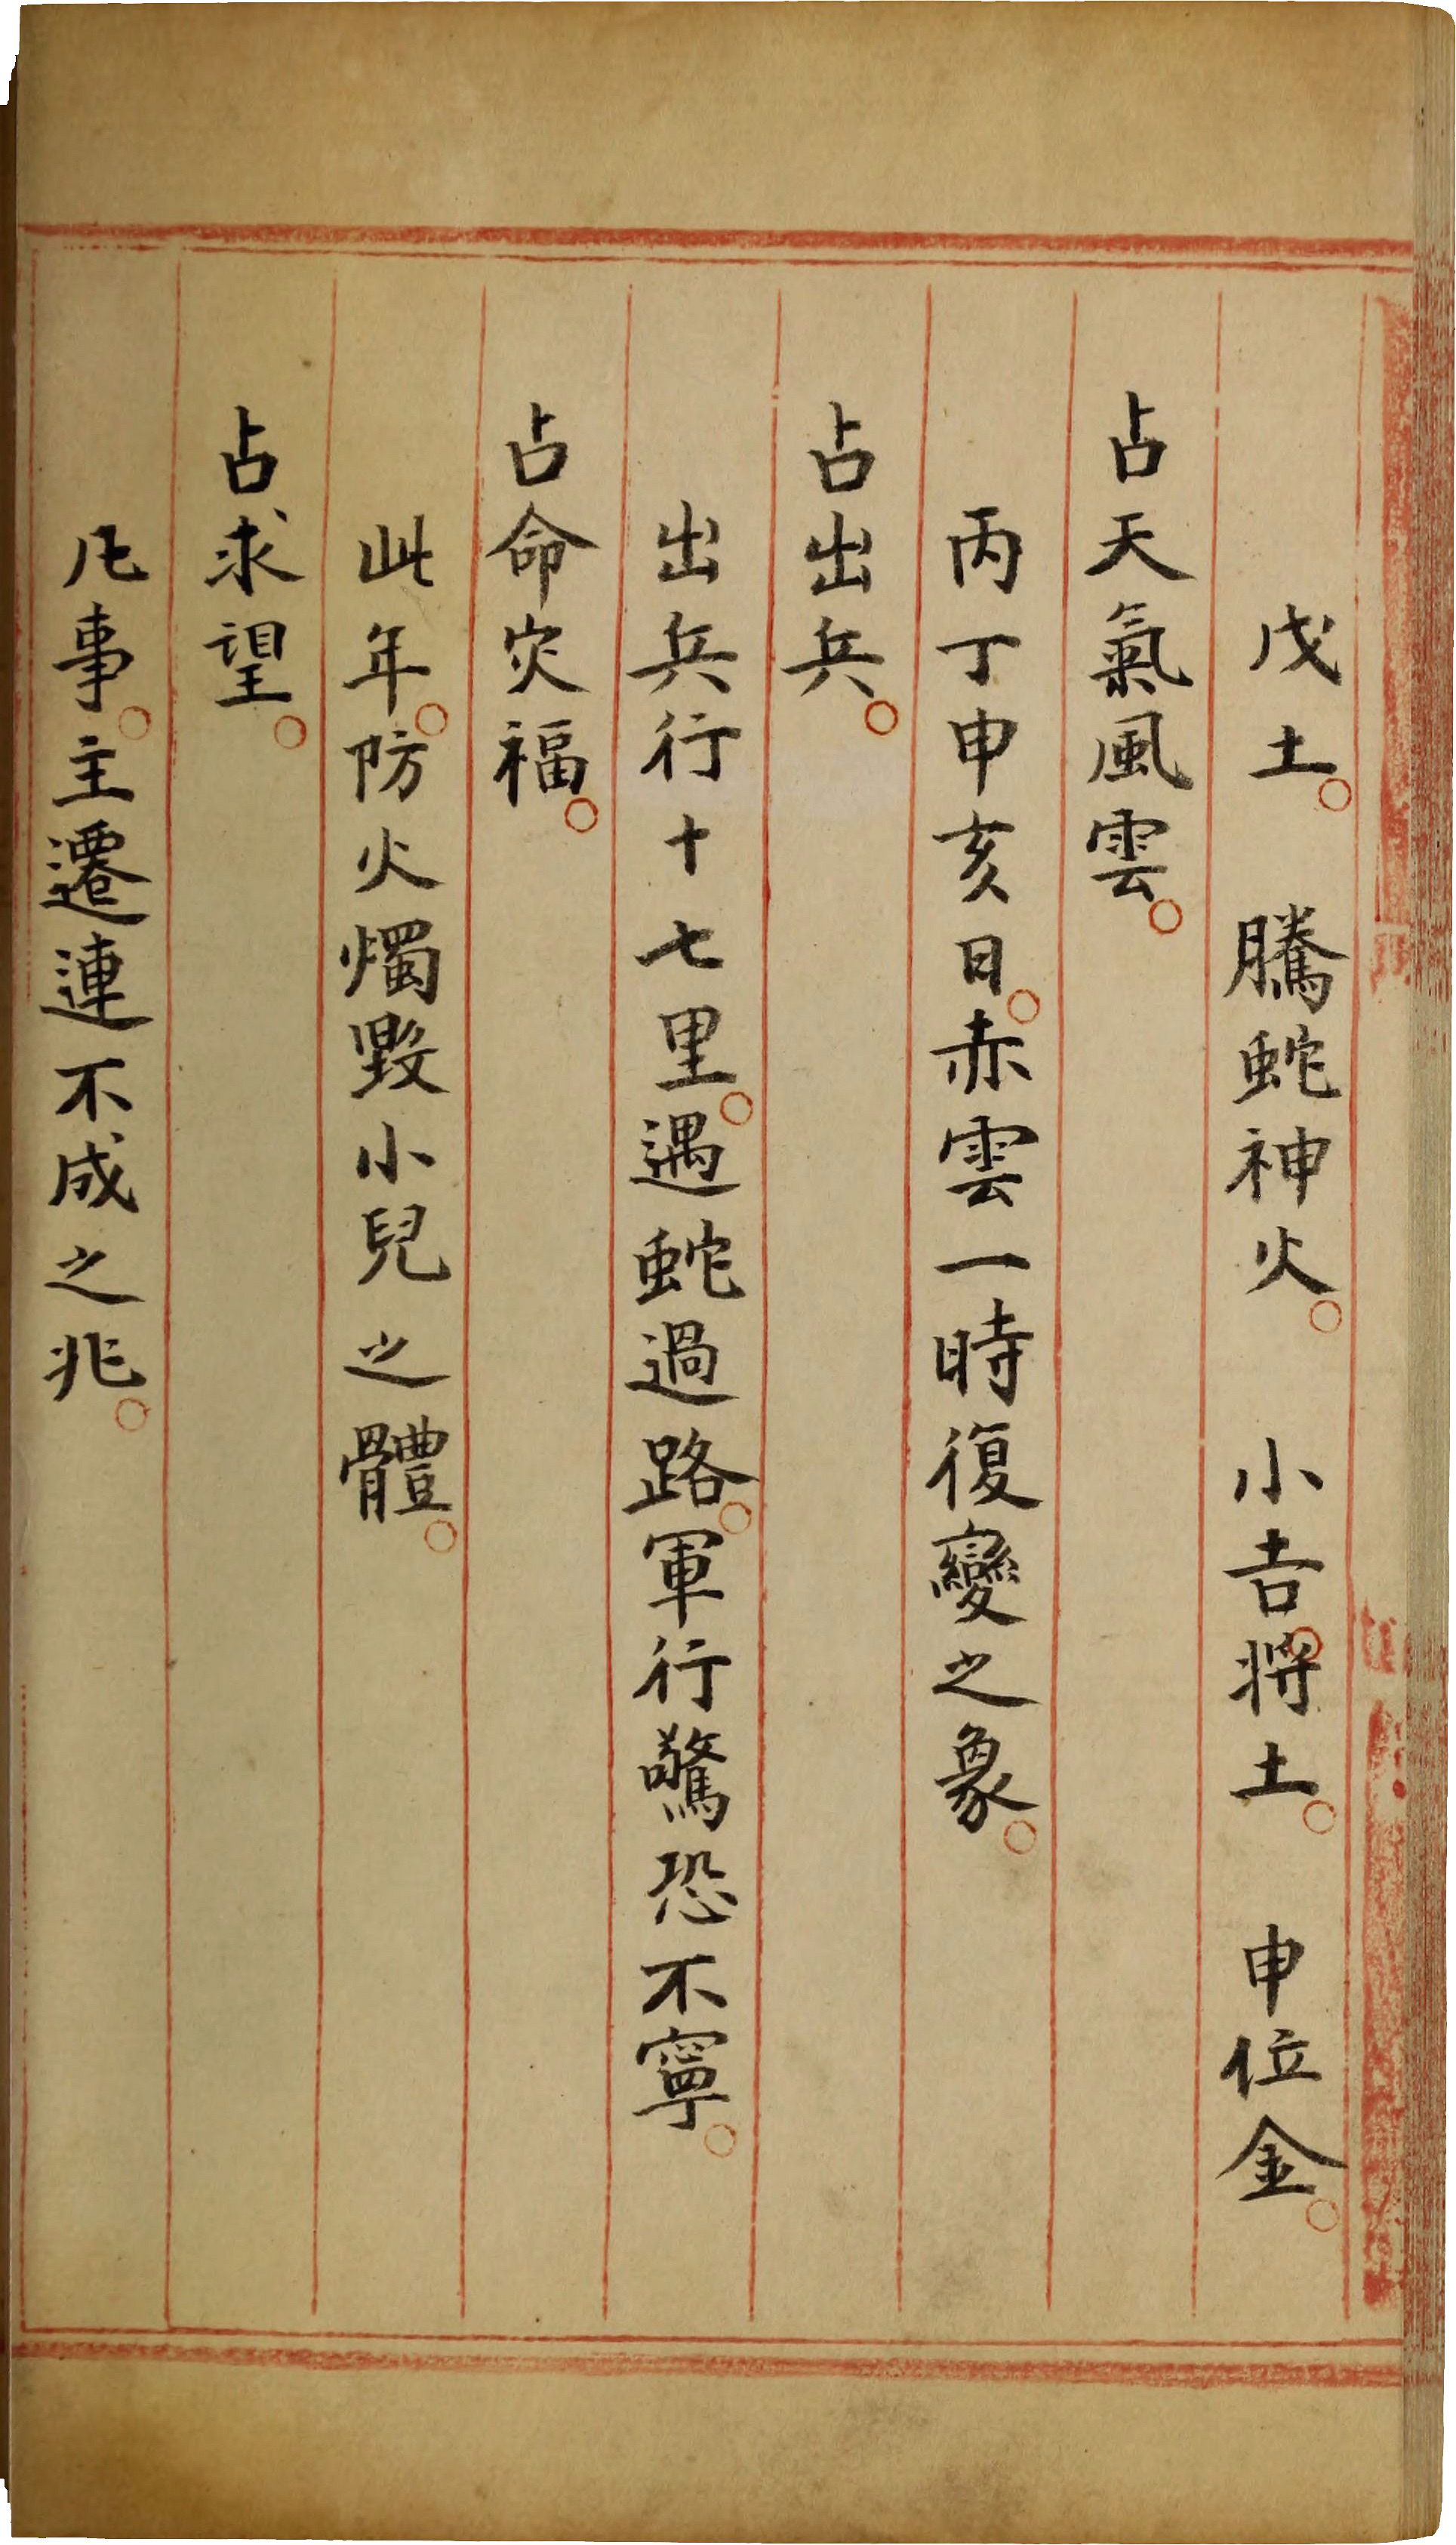 戊土。 騰蛇神火。 小吉。將土。 申位金。
占天氣風雲。
丙丁申亥日。赤雲一時復變之象。
占出兵。
出兵行十七里。遇蛇過路。軍行驚恐不寧。
占命灾福。
此年。防火燭毀小兒之體。
占求望。
凡事。主遷連不成之兆。